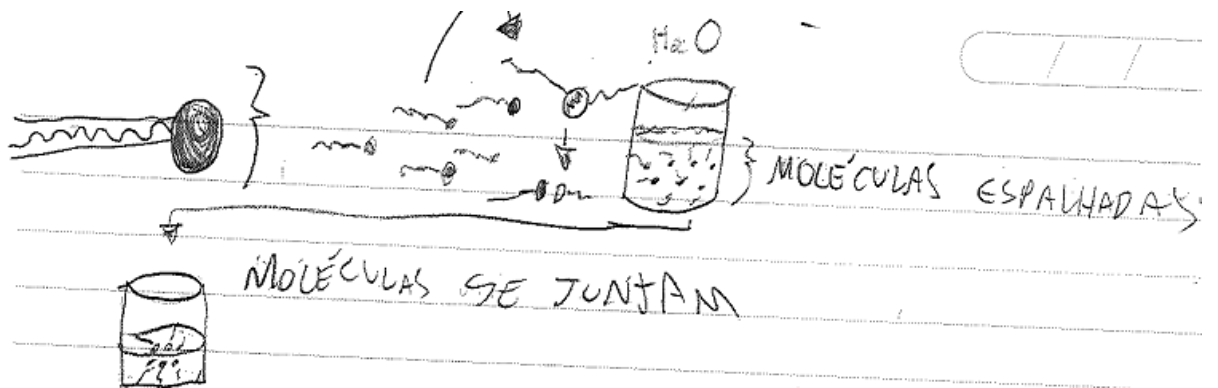 H2O
MOLÉCULAS ESPALHADAS
MOLÉCULAS SE JUNTAM